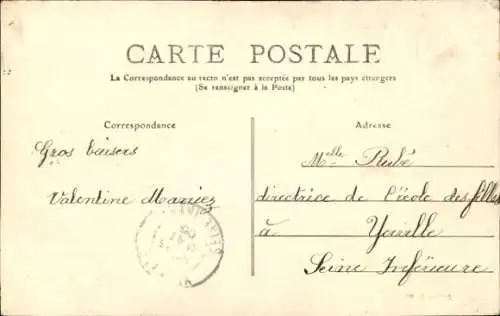 CARTE POSTALE
La Correspondance au recto n'est pas acceptée par tous les pays étrangers
(Se renseigner à la Poste)
Correspondance
Adresse
Gros baisers
Valentine
Melle Rubé
directrice de l'école des filles
à Yerville
Seine Inférieure